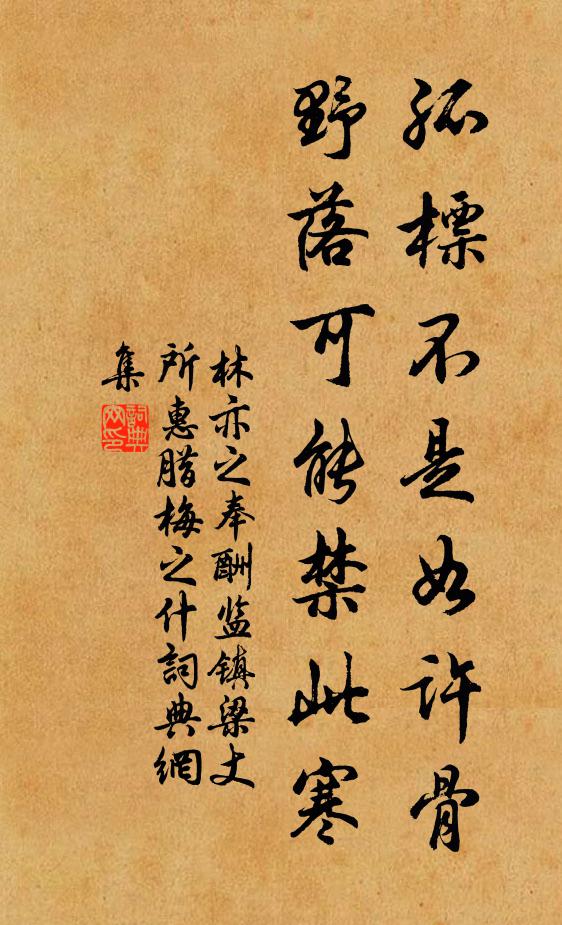 孤標不是如許骨
野落可能禁此寒
林亦之奉酬监镇梁丈
所惠腊梅之什詞典網
集
詞典
网印